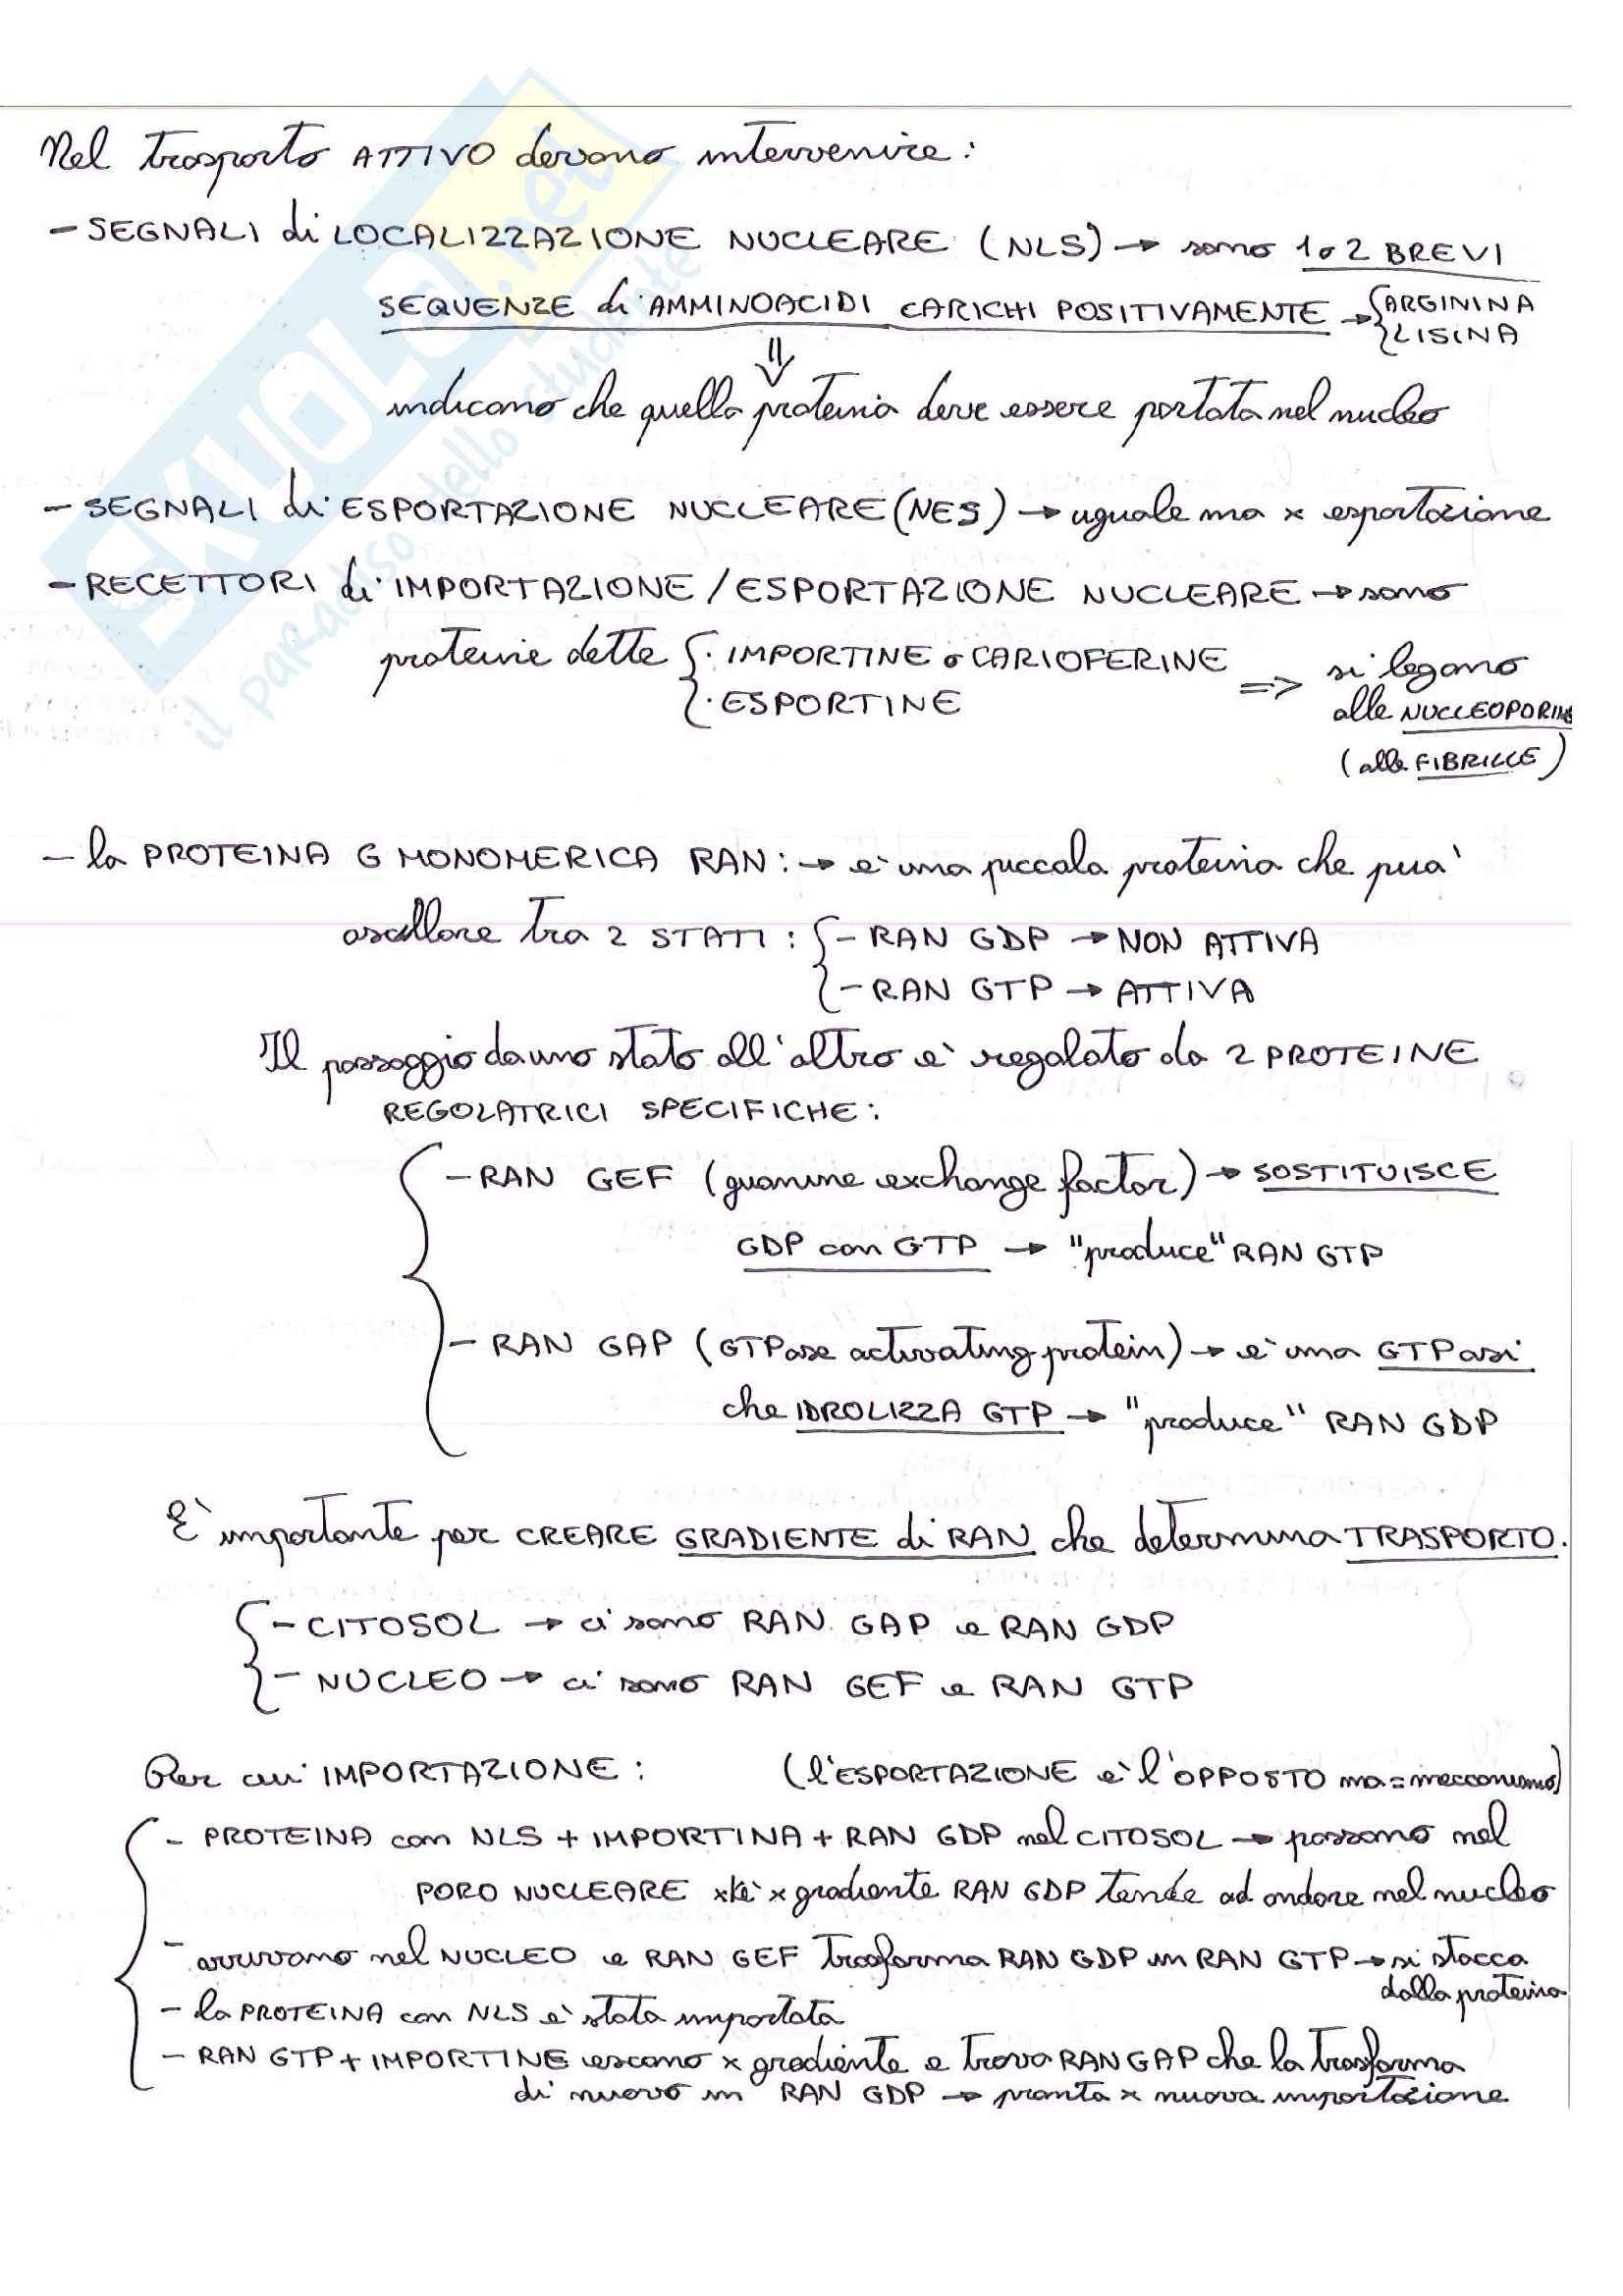 Nel trasporto ATTIVO devono intervenire:
- SEGNALI di LOCALIZZAZIONE NUCLEARE (NLS) → sono 1 o 2 BREVI
SEQUENZE di AMMINOACIDI CARICHI POSITIVAMENTE → { ARGININA
LISINA
⇓
indicano che quella proteina deve essere portata nel nucleo
- SEGNALI di ESPORTAZIONE NUCLEARE (NES) → uguale ma x esportazione
- RECETTORI di IMPORTAZIONE / ESPORTAZIONE NUCLEARE → sono
proteine dette { · IMPORTINE o CARIOFERINE => si legano
· ESPORTINE alle NUCLEOPORINE
(alle FIBRILLE)
- la PROTEINA G MONOMERICA RAN: → è una piccola proteina che può
oscillare tra 2 STATI: { - RAN GDP → NON ATTIVA
- RAN GTP → ATTIVA
Il passaggio da uno stato all'altro è regolato da 2 PROTEINE
REGOLATRICI SPECIFICHE:
- RAN GEF (guanine exchange factor) → SOSTITUISCE
GDP con GTP → "produce" RAN GTP
- RAN GAP (GTPase activating protein) → è una GTPasi
che IDROLIZZA GTP → "produce" RAN GDP
E' importante per CREARE GRADIENTE di RAN che determina TRASPORTO.
- CITOSOL → ci sono RAN GAP e RAN GDP
- NUCLEO → ci sono RAN GEF e RAN GTP
Per un' IMPORTAZIONE: (l'ESPORTAZIONE è l'OPPOSTO ma = meccanismo)
- PROTEINA con NLS + IMPORTINA + RAN GDP nel CITOSOL → passano nel
PORO NUCLEARE xkè x gradiente RAN GDP tende ad andare nel nucleo
- arrivano nel NUCLEO e RAN GEF trasforma RAN GDP in RAN GTP → si stacca
dalla proteina
- la PROTEINA con NLS è stata importata
- RAN GTP + IMPORTINE escono x gradiente e trova RAN GAP che la trasforma
di nuovo in RAN GDP → pronta x nuova importazione
SKUOLA.net
il paradiso dello studente